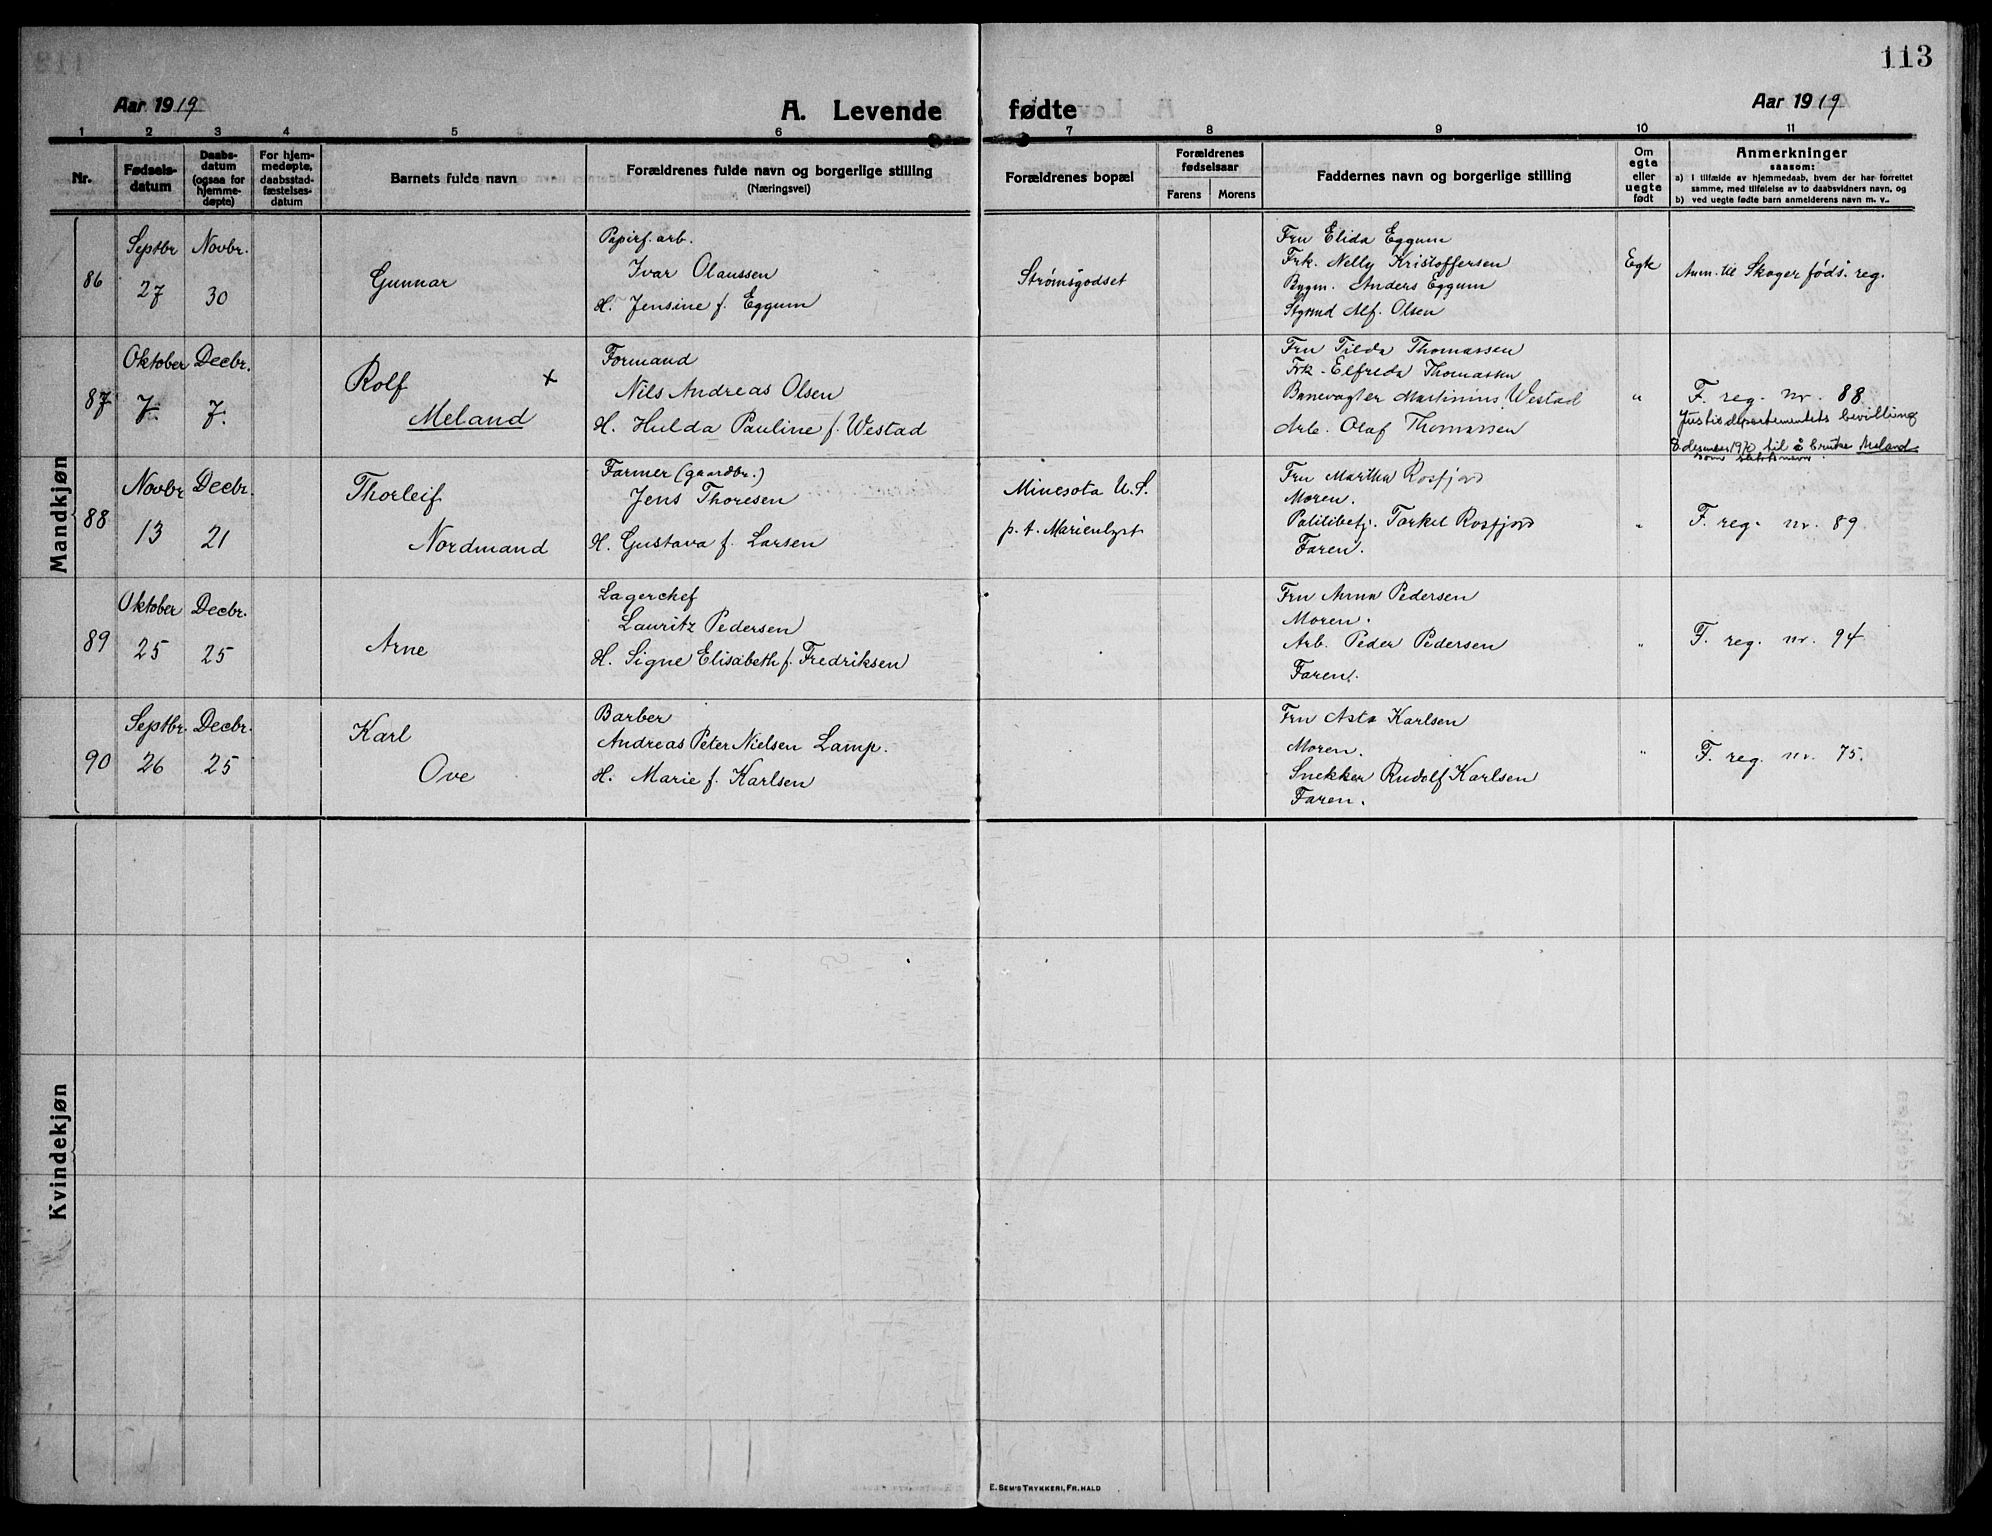 113
Aar 1919
A. Levende fødte
Aar 1919
1 2 3 4 5 6 7 8 9 10 11
Nr.
Fødselsdatum
Daabsdatum (ogsaa for hjemmedøpte)
For hjemmedøpte, daabsstadfæstelsesdatum
Barnets fulde navn
Forældrenes fulde navn og borgerlige stilling
(Næringsvei)
Forældrenes bopæl
Forældrenes fødselsaar
Farens Morens
Faddernes navn og borgerlige stilling
Om egte eller uegte født
Anmerkninger
saasom:
a) I tilfælde av hjemmedaab, hvem der har forrettet
samme, med tilføielse av to daabsvidners navn, og
b) ved uegte fødte barn anmelderens navn m. v..
Mandkjøn
86
Septbr 27
Novbr. 30
Gunnar
Papirf. arb.
Ivar Olaussen
H. Jensine f. Eggum
Strømsgodset
Fru Elida Eggum
Frk. Nelly Kristoffersen
Bygm. Anders Eggum
Styrmd Alf. Olsen
Egte
Anm. til Skoger føds. reg.
87
Oktober 7.
Decbr. 7.
Rolf +
Meland
Formand
Nils Andreas Olsen
H. Hulda Pauline f. Westad
Fru Tilda Thomassen
Frk. Elfreda Thomassen
Banevagter Martinius Westad
Arb. Olaf Thomassen
"
F. reg. nr. 88
Justisdepartementets bevilling
til å bruke Meland
som slektsnavn.
88
Novbr 13
Decbr. 21
Thorleif
Nordmand
Farmer (gaardbr.)
Jens Thoresen
H. Gustava f. Larsen
Minesota U.S.
p. t. Marienlyst
Fru Martha Rosfjord
Moren.
Politibetj. Torkel Rosfjord
Faren.
"
F. reg. nr. 89
89
Oktober 25
Decbr. 25
Arne
Lagerchef
Lauritz Pedersen
H. Signe Elisabeth f. Fredriksen
Fru Anna Pedersen
Moren.
Arb. Peder Pedersen
Faren.
"
F. reg. nr. 94
90
Septbr. 26
Decbr. 25
Karl
Ove
Barber
Andreas Peter Nielsen Lamp.
H. Marie f. Karlsen
Fru Asta Karlsen
Moren.
Snekker Rudolf Karlsen
Faren.
"
F. reg. nr. 75.
Kvindekjøn
E. Sem's Trykkeri, Fr.hald